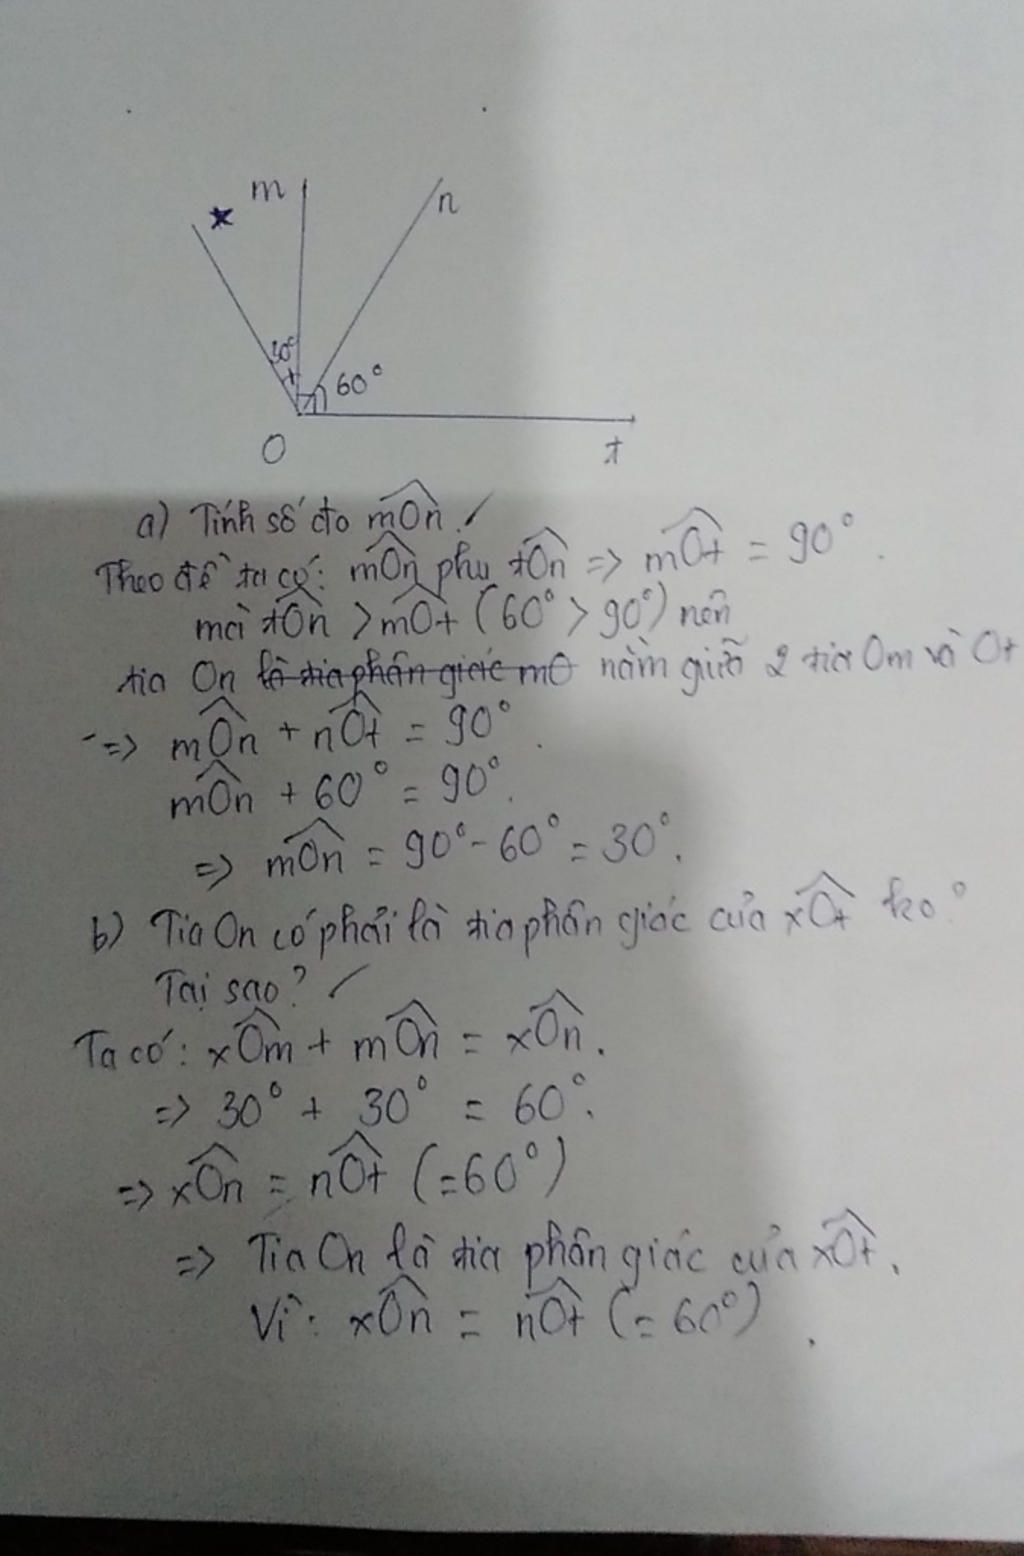 m
n
x
30°
60°
O
t
a) Tính số đo mÔn.
Theo đề ta có: mÔn phụ tÔn => mÔt = 90°.
mà tÔn > mÔt (60° > 90°) nên
tia On là tia phân giác mO nằm giữa 2 tia Om và Ot
=> mÔn + nÔt = 90°.
mÔn + 60° = 90°.
=> mÔn = 90° - 60° = 30°.
b) Tia On có phải là tia phân giác của xÔt ko?
Tại sao?
Ta có: xÔm + mÔn = xÔn.
=> 30° + 30° = 60°.
=> xÔn = nÔt (=60°)
=> Tia On là tia phân giác của xÔt.
Vì: xÔn = nÔt (= 60°).